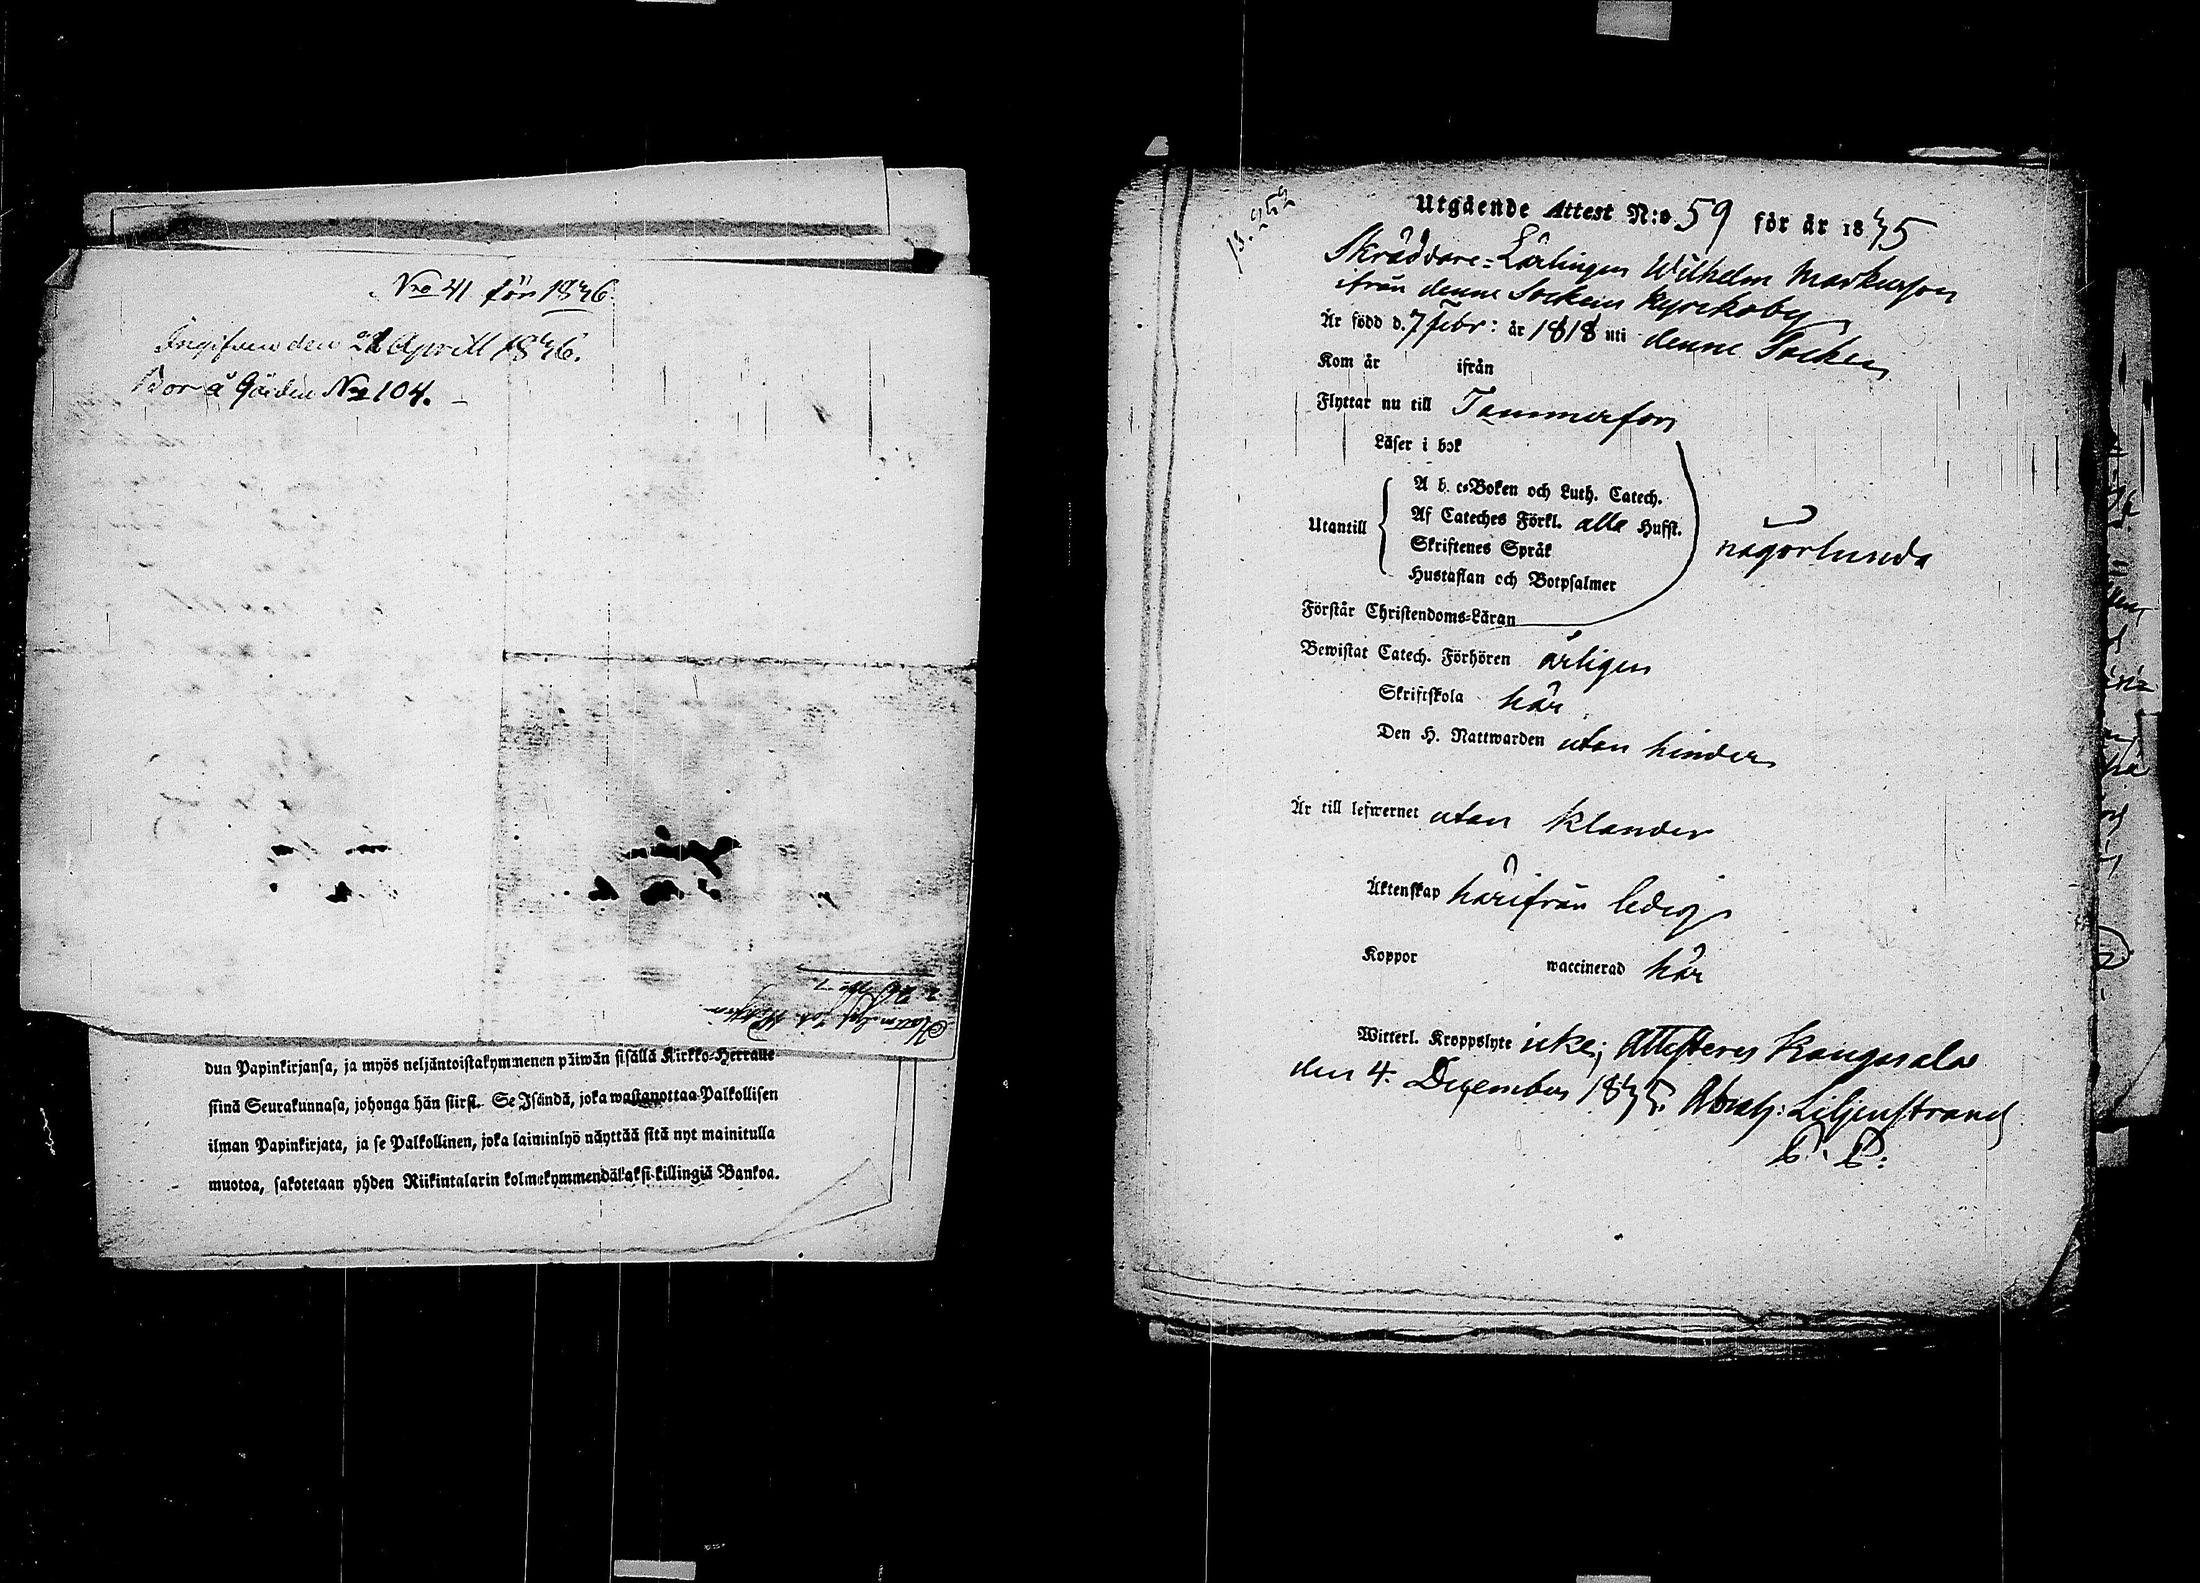 Nro 41 för 1836.
Ingifven den 21 Aprill 1836.
Bor å Gården Nro 104.
dun Papinkirjansa, ja myös neljäntoistakymmenen päiwän sisällä Kirkko-Herralle
siinä Seurakunnasa, johonga hän siirst. Se Isändä, joka wastanottaa Palkollisen
ilman Papinkirjata, ja se Palkollinen, joka laiminlyö näyttää sitä nyt mainitulla
muotoa, sakotetaan yhden Riikintalarin kolmekymmendäkaksi killingiä Bankoa.
p. 259
Utgående Attest N:o 59 för år 1835
Skräddare-Lärlingen Wilhelm Markusson
ifrån denne Sockens Kyrckoby
Är född d. 7 Febr: år 1818 uti denne Socken
Kom år ifrån
Flyttar nu till Tammerfors
Läser i bok
A b c-Boken och Luth. Catech.
Utantill Af Cateches Förkl. alla Hufst.
Skriftenes Språk
Hustaflan och Botpsalmer
någorlunda
Förstår Christendoms-Läran
Bewistat Catech. Förhören årligen
Skriftskola här
Den H. Nattwarden utan hinder
Är till lefwernet utan klander
Äktenskap härifrån ledig
Koppor waccinerad här
Witterl. Kroppslyte icke; Attesteras Kangasala
den 4. December 1835. Abrah: Liljenstrand